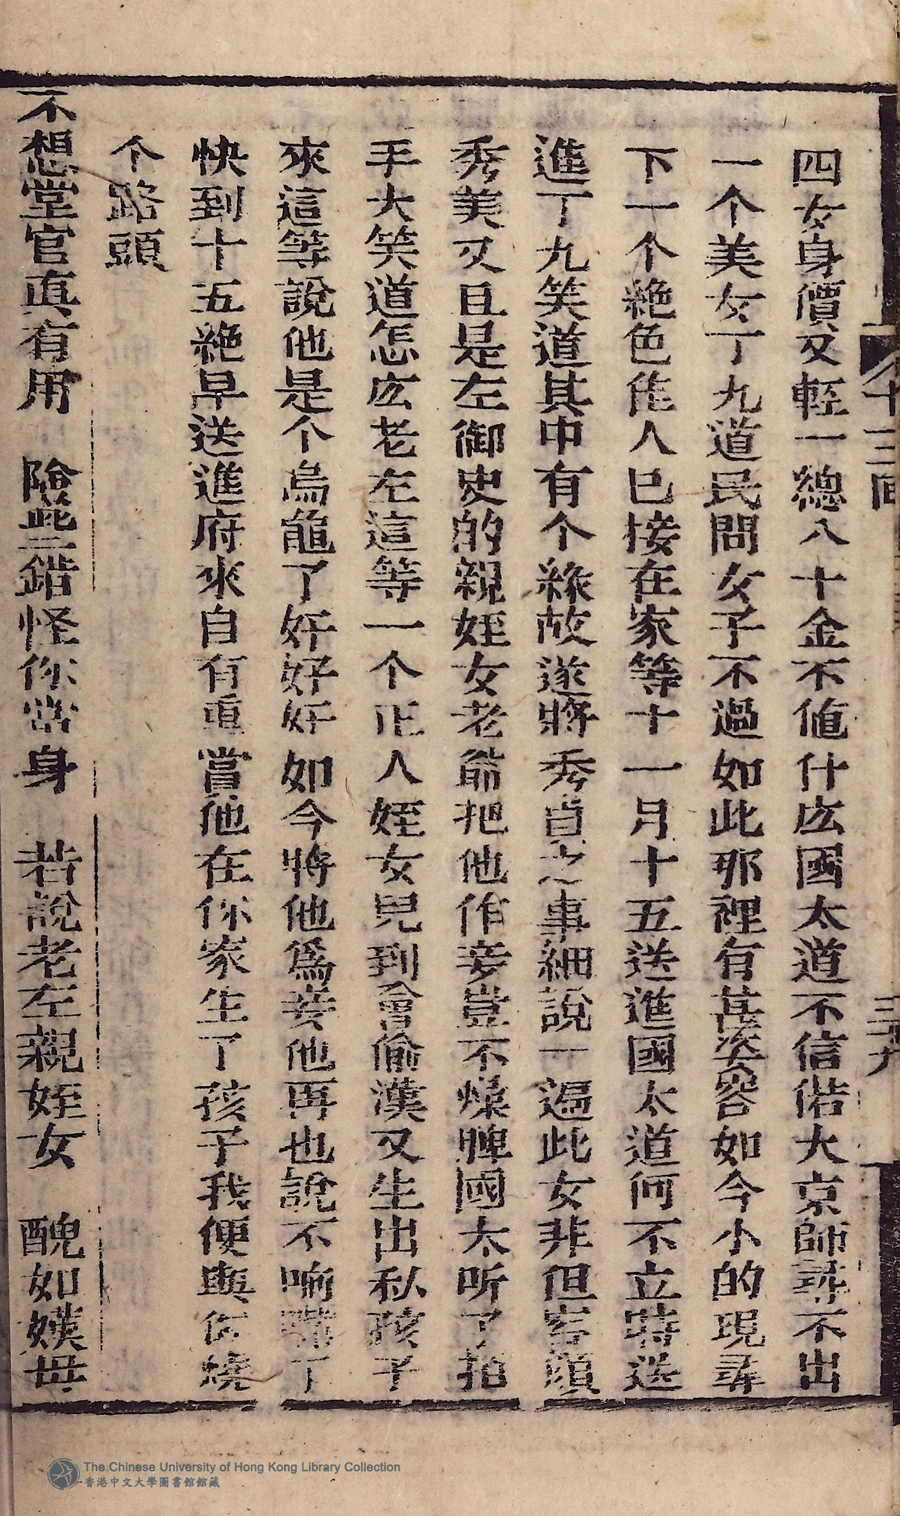 四女身價又輕一總八十金不値什庅國太道不信偌大京師尋不出
一个美女丁九道民間女子不過如此那裡有甚姿容如今小的現尋
下一个絶色佳人巳接在家等十一月十五送進國太道何不立時送
進丁九笑道其中有个緣故遂將秀貞之事細說一遍此女非但容顏
秀美又且是左御史的親姪女老爺把他作妾豈不燥脾國太听了拍
手大笑道怎庅老左這等一个正人姪女兒到會偷漢又生出私孩子
來這等說他是个烏龜了好好好如今將他爲妾他再也說不响嘴了
快到十五絶早送進府來自有重賞他在你家生了孩子我便與你燒
个路頭
不想堂官真有用　險些錯怪你當身　若說老左親姪女　醜如嫫母
十三回
三十九
The Chinese University of Hong Kong Library Collection
香港中文大學圖書館館藏